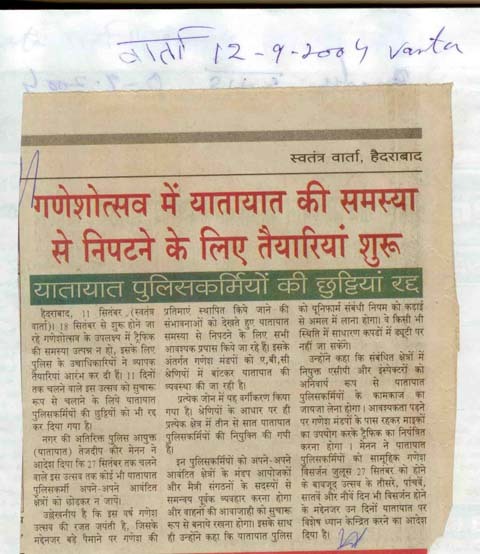 वार्ता 12-9-2004 Varta
स्वतंत्र वार्ता, हैदराबाद
गणेशोत्सव में यातायात की समस्या
से निपटने के लिए तैयारियां शुरू
यातायात पुलिसकर्मियों की छुट्टियां रद्द
हैदराबाद, 11 सितंबर (स्वतंत्र
वार्ता)। 18 सितंबर से शुरु होने जा
रहे गणेशोत्सव के उपलक्ष्य में ट्रैफिक
की समस्या उत्पन्न न हो, इसके लिए
पुलिस के उच्चाधिकारियों ने व्यापक
तैयारियां आरंभ कर दी हैं। 11 दिनों
तक चलने वाले इस उत्सव को सुचारू
रूप से चलाने के लिये यातायात
पुलिसकर्मियों की छुट्टियों को भी रद्द
कर दिया गया है।
नगर की अतिरिक्त पुलिस आयुक्त
(यातायात) तेजदीप कौर मेनन ने
आदेश दिया कि 27 सितंबर तक चलने
वाले इस उत्सव तक कोई भी यातायात
पुलिसकर्मी अपने-अपने आवंटित
क्षेत्रों को छोड़कर न जाये।
उल्लेखनीय है कि इस वर्ष गणेश
उत्सव की रजत जयंती है, जिसके
मद्देनजर बड़े पैमाने पर गणेश की
प्रतिमाएं स्थापित किये जाने की
संभावनाओं को देखते हुए यातायात
समस्या से निपटने के लिए सभी
आवश्यक प्रयास किये जा रहे हैं। इसके
अंतर्गत गणेश मंडपों को ए,बी,सी
श्रेणियों में बांटकर यातायात की
व्यवस्था की जा रही है।
प्रत्येक जोन में यह वर्गीकरण किया
गया है। श्रेणियों के आधार पर ही
प्रत्येक क्षेत्र में तीन से सात यातायात
पुलिसकर्मियों की नियुक्ति की गयी
है।
इन पुलिसकर्मियों को अपने-अपने
आवंटित क्षेत्रों के मंडप आयोजकों
और मैत्री संगठनों के सदस्यों से
समन्वय पूर्वक व्यवहार करना होगा
और वाहनों की आवाजाही को सुचारू
रूप से बनाये रखना होगा। इसके साथ
ही उन्होंने कहा कि यातायात पुलिस
को यूनिफार्म संबंधी नियम को कड़ाई
से अमल में लाना होगा। वे किसी भी
स्थिति में साधारण कपडों में ड्यूटी पर
नहीं जा सकेंगे।
उन्होंने कहा कि संबंधित क्षेत्रों में
नियुक्त एसीपी और इंस्पेक्टरों को
अनिवार्य रूप से यातायात
पुलिसकर्मियों के कामकाज का
जायजा लेना होगा। आवश्यकता पड़ने
पर गणेश मंडपों के पास रहकर माइकों
का उपयोग करके ट्रैफिक का नियंत्रित
करना होगा। मेनन ने यातायात
पुलिसकर्मियों को सामूहिक गणेश
विसर्जन जुलूस 27 सितंबर को होने
के बावजूद उत्सव के तीसरे, पांचवें,
सातवें और नौवें दिन भी विसर्जन होने
के मद्देनजर उन दिनों यातायात पर
विशेष ध्यान केन्द्रित करने का आदेश
दिया है।